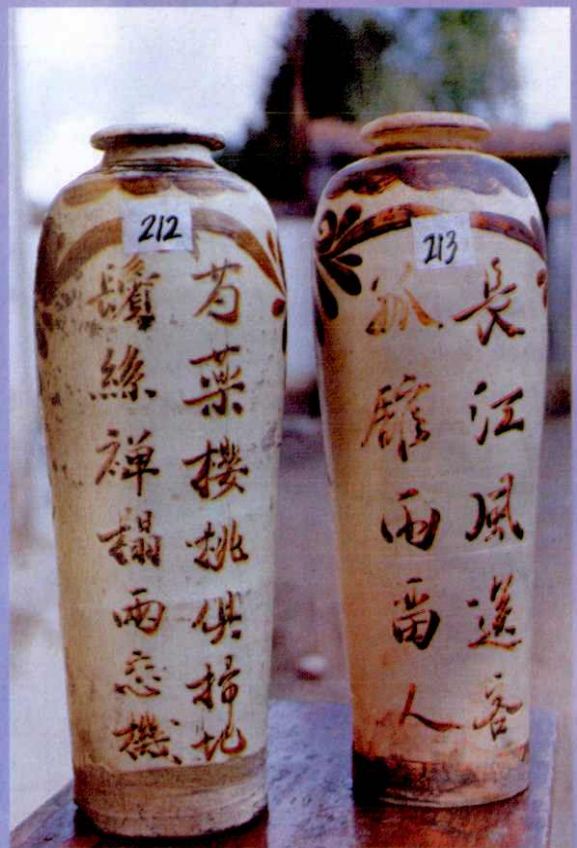 212
芍藥櫻挑俱掃地
鬢絲禅榻兩忘機
213
長江風送客
孤館雨留人